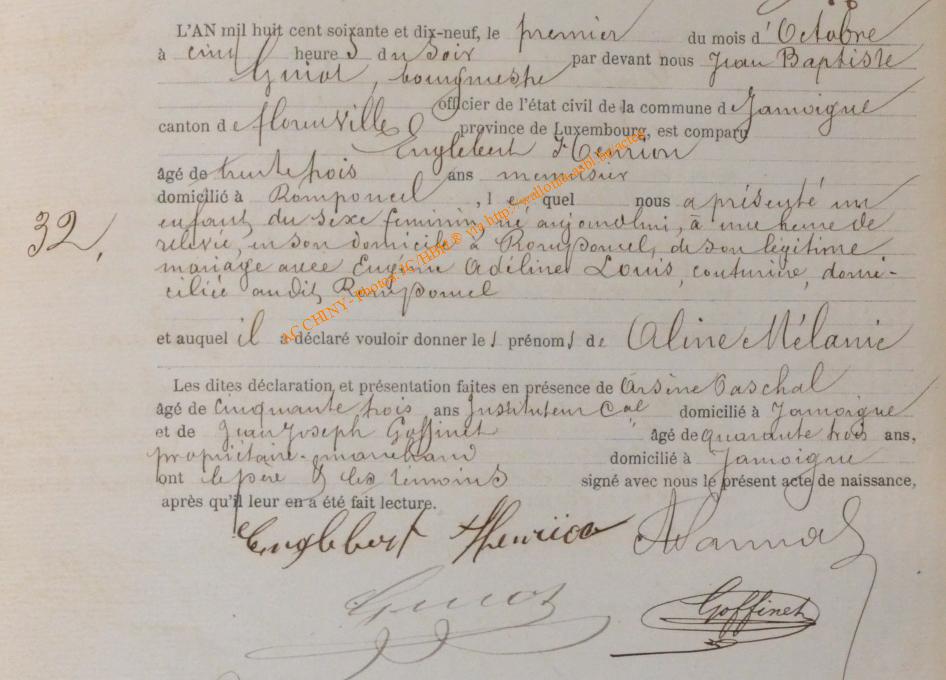 L'AN mil huit cent soixante et dix-neuf, le premier du mois d'Octobre
à cinq heures du Soir par devant nous Jean Baptiste
bourgmestre
officier de l'état civil de la commune de Jamoigne
canton de florenville province de Luxembourg, est comparu
Englebert Henrion
âgé de trente trois ans menuisier
domicilié à Romponcel, lequel nous a présenté un
enfant du sexe feminin né aujourdhui, à une heure de
relevée, en son domicile à Romponcel, de son légitime
mariage avec Eugénie Adéline Louis, couturière, domi-
ciliée audit Romponcel
32,
et auquel il a déclaré vouloir donner les prénoms de Aline Mélanie
Les dites déclaration et présentation faites en présence de Arsène Paschal
âgé de Cinquante trois ans Instituteur Cal domicilié à Jamoigne
et de Jean Joseph Goffinet âgé de quarante trois ans,
propriétaire-marchand domicilié à Jamoigne
ont le père & les témoins signé avec nous le présent acte de naissance,
après qu'il leur en a été fait lecture.
Englebert Henrion
Goffinet
AC CHINY - Photos JG/HDM® via http://wallonia.asbl.be/actes